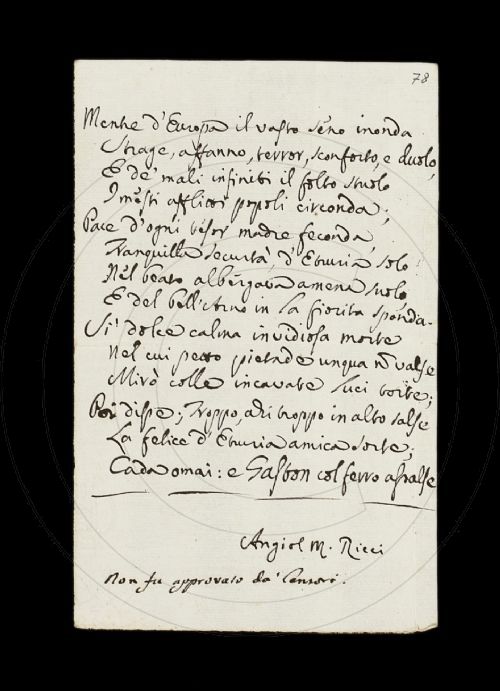 78
Mentre d'Europa il vasto seno inonda
Strage, affanno, terror, sconforto, e duolo,
E de' mali infiniti il folto stuolo
I mesti afflitti popoli circonda;
Pace d'ogni tesor madre feconda,
Tranquilla securtà, d'Etruria solo
Nel beato albergava ameno suolo,
E del bell'Arno in la fiorita sponda.
Sì dolce calma invidiosa morte
Nel cui petto pietade unqua nõ valse
Mirò colle incavate luci torte;
Poi disse; Troppo, ahi troppo in alto salse
La felice d'Etruria amica sorte;
Cada omai: e Gaston col ferro assalse
Angiol M. Ricci
Non fu approvato da' Censori.